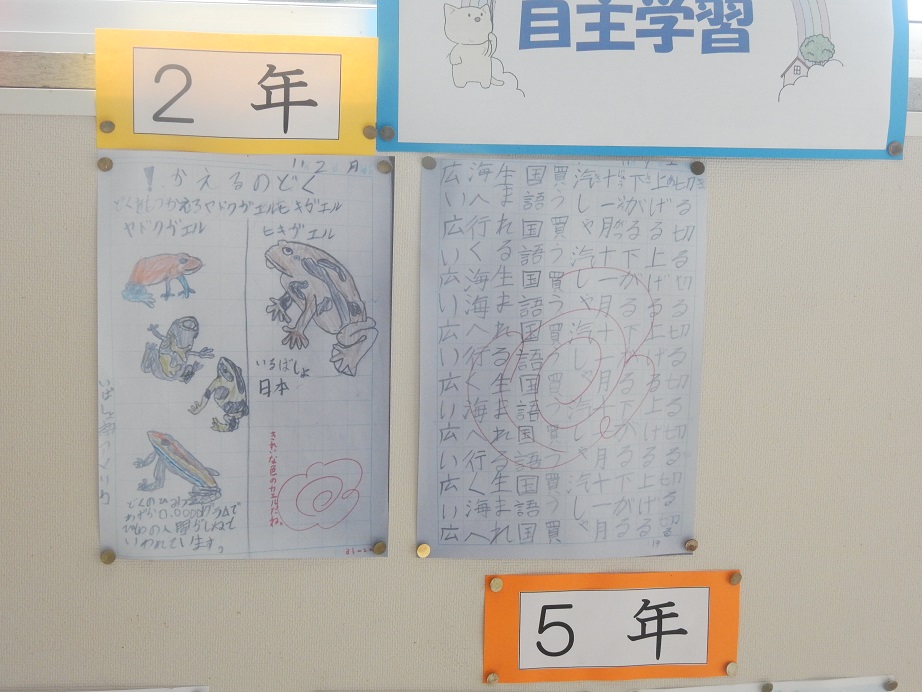 自主学習
2 年
!かえるのどく
どくをもつかえるヤドクガエルヒキガエル
ヤドクガエル
ヒキガエル
いるばしょ
日本
きれいな色のカエルだね。
いわれています。
切る切る切る切る切る切る切る切
上げる上げる上げる上げる上げる
下がる下がる下がる下がる下がる
十一月十一月十一月十一月十一月
汽しゃ汽しゃ汽しゃ汽しゃ汽しゃ
買う買う買う買う買う買う買う買
国語国語国語国語国語国語国語国
生まれる生まれる生まれる生まれ
海へ行く海海へ行く海へ行く海へ
広い広い広い広い広い広い広い広
5 年